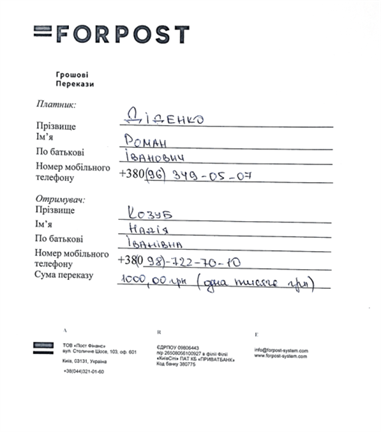 FORPOST
Грошові
Перекази
Платник:
Прізвище Діденко
Ім'я Роман
По батькові Іванович
Номер мобільного
телефону +380(96) 349-05-07
Отримувач:
Прізвище Козуб
Ім'я Надія
По батькові Іванівна
Номер мобільного
телефону +380(98)-722-70-10
Сума переказу 1000,00 грн (одна тисяча грн)
А Н Е
ТОВ «Пост Фінанс»
вул. Столичне Шосе, 103, оф. 601
Київ, 03131, Україна
+38(044)321-01-60
ЄДРПОУ 09806443
п/р 26508056100927 в філії Філії
«КиївСіті» ПАТ КБ «ПРИВАТБАНК»
Код банку 380775
info@forpost-system.com
www.forpost-system.com